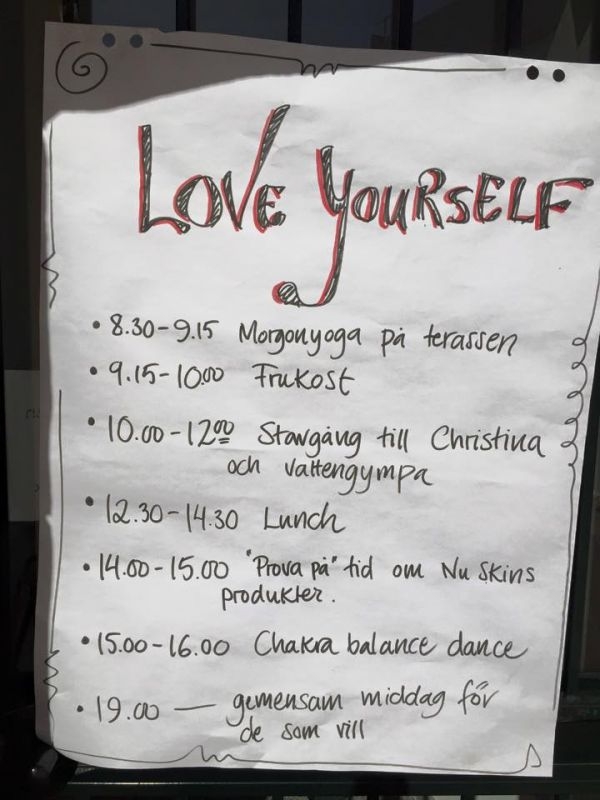 LOVE YOURSELF
• 8.30-9.15 Morgonyoga på terassen
• 9.15-10.00 Frukost
• 10.00-12.00 Stavgång till Christina
och vattengympa
• 12.30-14.30 Lunch
• 14.00-15.00 "Prova på" tid om Nu Skins
produkter.
• 15.00-16.00 Chakra balance dance
• 19.00 — gemensam middag för
de som vill